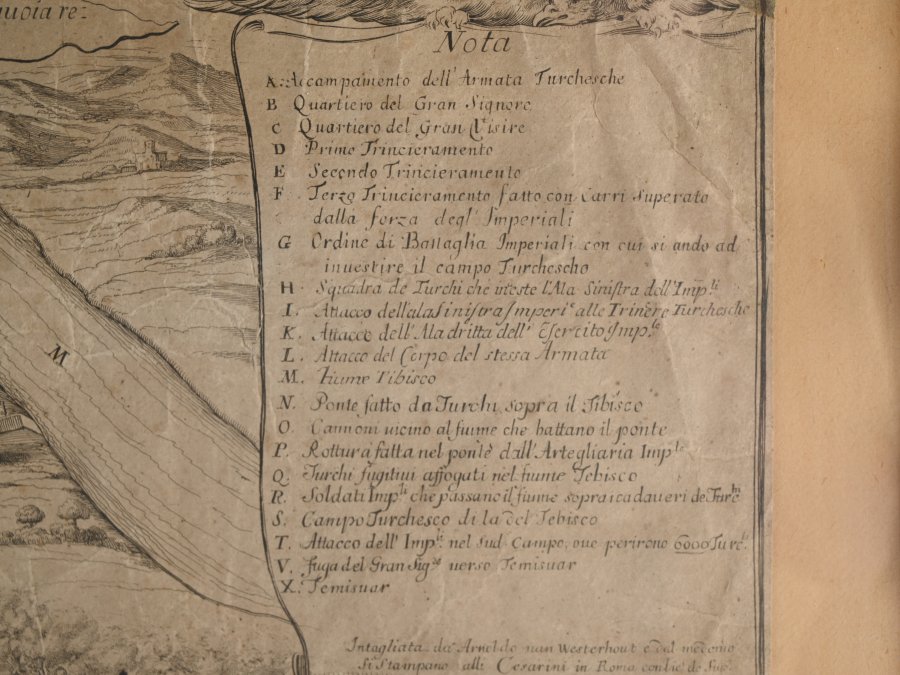 Nota
A. Accampamento dell'Armata Turchesche
B Quartiero del Gran Signore
C Quartiero del Gran Visire
D Primo Trincieramento
E Secondo Trincieramento
F Terzo Trincieramento fatto con Carri Superato
dalla forza degl'Imperiali
G Ordine di Battaglia Imperiali con cui si ando ad
inuestire il campo Turchescho
H Squadra de Turchi che inueste l'Ala Sinistra dell'Imp.li
I. Attacco dell'ala Sinistra Imperi.e alle Trincre Turchesche
K. Attacco dell'Ala dritta dell'Esercito Imp.le
L. Attacco del Corpo del stessa Armata
M. Fiume Tibisco
M
N. Ponte fatto da Turchi sopra il Tibisco
O. Cannoni uicino al fiume che battano il ponte
P. Rottura fatta nel ponte dall'Artegliaria Imp.le
Q. Turchi fugitiui affogati nel fiume Tebisco
R. Soldati Imp.li che passano il fiume sopra i cadaueri de Turc.hi
S. Campo Turchesco di la del Tebisco
T. Attacco dell'Imp.li nel sud. Campo, oue perirono 6000 Turc.hi
V. fuga del Gran Sig.re uerso Temisuar
X. Temisuar
Intagliata da Arnoldo uan Westerhout e dal medemo
Si Stampano alli Cesarini in Roma con lic. de Sup.